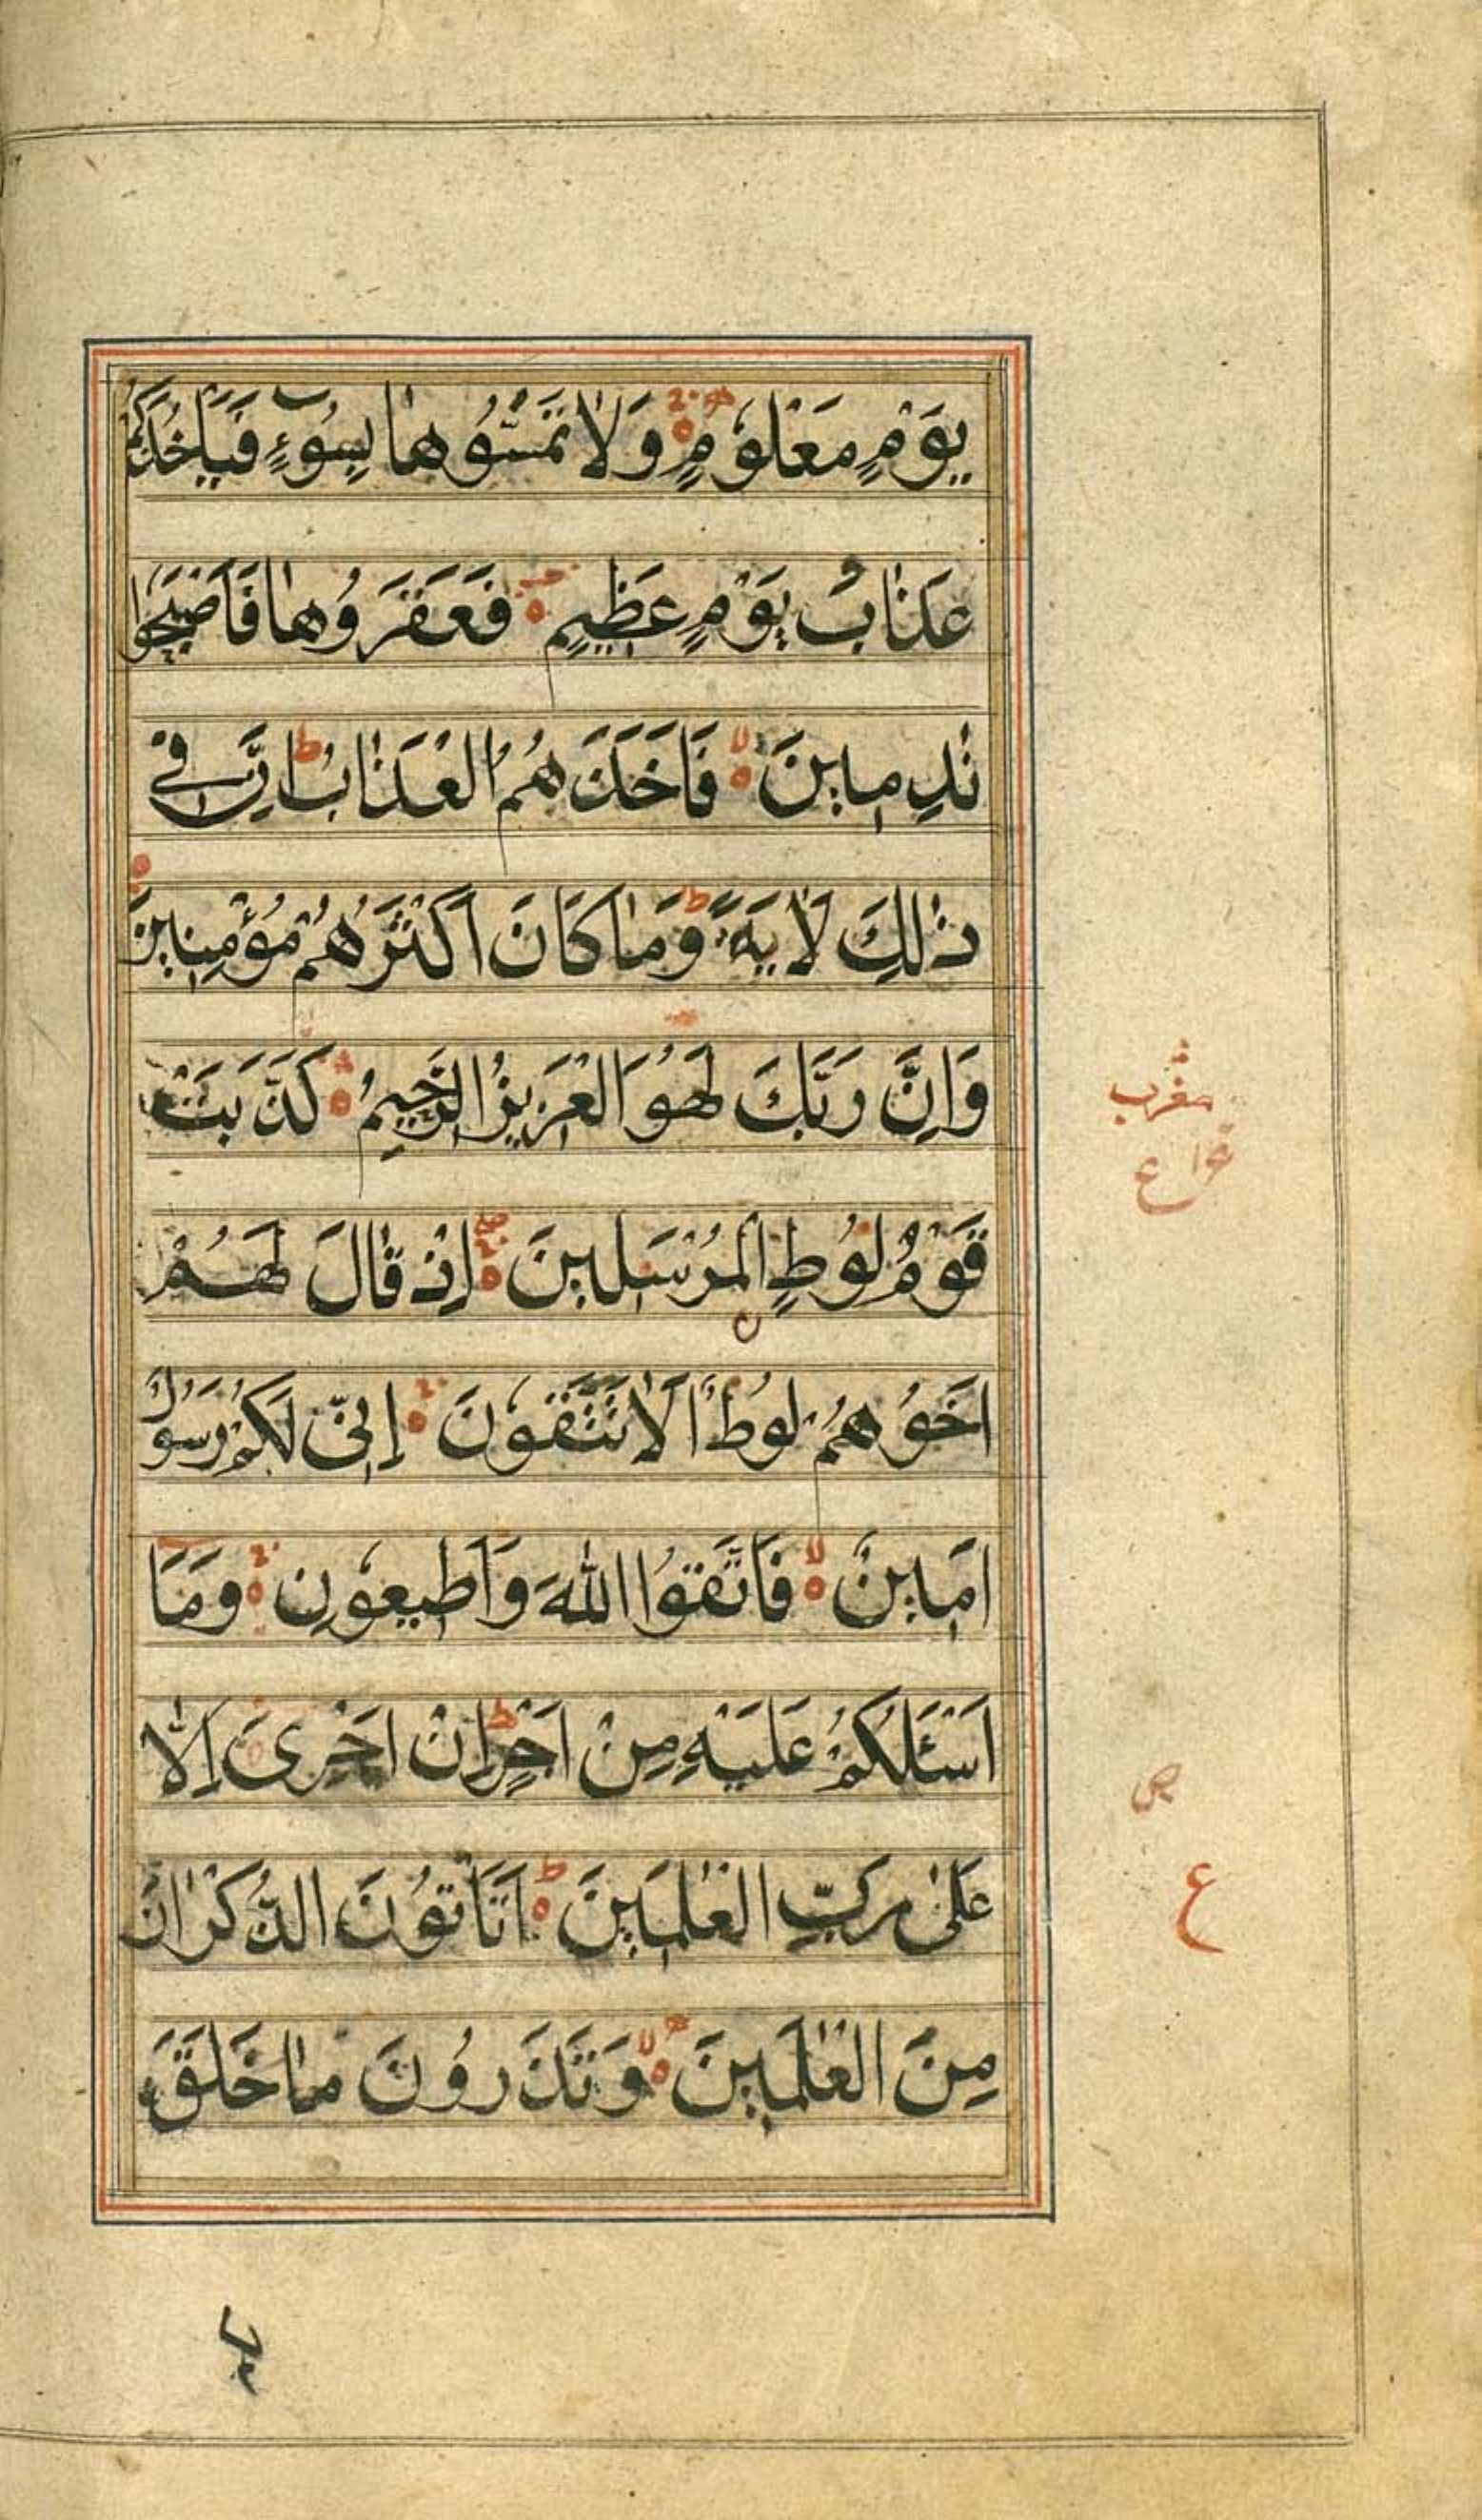 يَوْمٍ مَعْلُوْمٍ وَلَا تَمَسُّوْهَا بِسُوْءٍ فَيَأْخُذَكُمْ
عَذَابُ يَوْمٍ عَظِيْمٍ فَعَقَرُوْهَا فَاَصْبَحُوْا
نٰدِمِيْنَ فَاَخَذَهُمُ الْعَذَابُ ط اِنَّ فِيْ
ذٰلِكَ لَاٰيَةً ط وَمَا كَانَ اَكْثَرُهُمْ مُؤْمِنِيْنَ
وَاِنَّ رَبَّكَ لَهُوَ الْعَزِيْزُ الرَّحِيْمُ كَذَّبَتْ
قَوْمُ لُوْطٍ الْمُرْسَلِيْنَ اِذْ قَالَ لَهُمْ
اَخُوْهُمْ لُوْطٌ اَلَا تَتَّقُوْنَ اِنِّيْ لَكُمْ رَسُوْلٌ
اَمِيْنٌ فَاتَّقُوا اللّٰهَ وَاَطِيْعُوْنِ وَمَا
اَسْـَٔلُكُمْ عَلَيْهِ مِنْ اَجْرٍ ط اِنْ اَجْرِيَ اِلَّا
عَلٰى رَبِّ الْعٰلَمِيْنَ ط اَتَاْتُوْنَ الذُّكْرَانَ
مِنَ الْعٰلَمِيْنَ وَتَذَرُوْنَ مَا خَلَقَ
ع